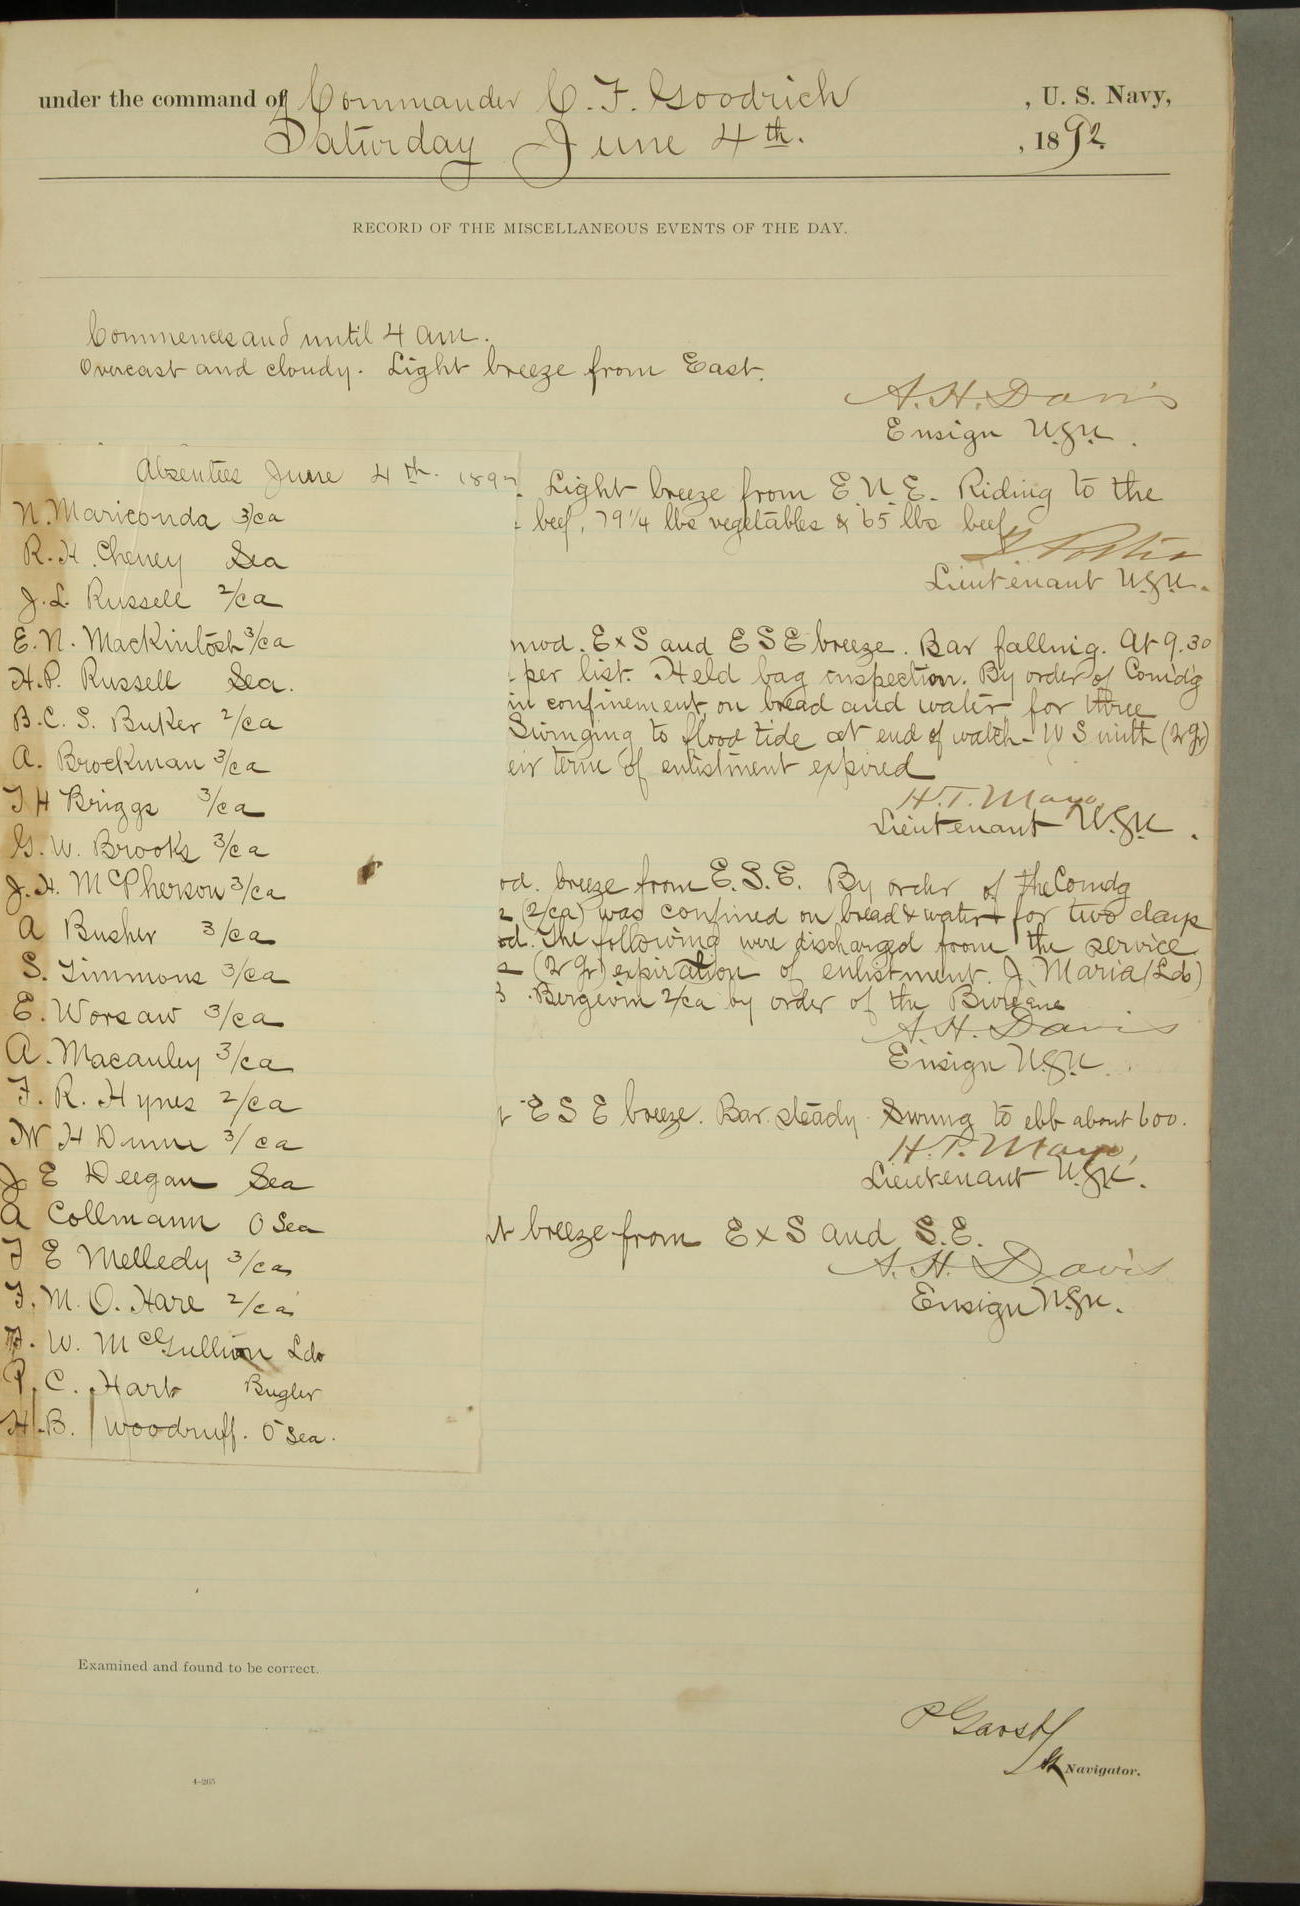 under the command of Commander C. F. Goodrich, U. S. Navy,
Saturday June 4th. , 1892.
RECORD OF THE MISCELLANEOUS EVENTS OF THE DAY.
Commences and until 4 am.
Overcast and cloudy. Light breeze from East.
A. H. Davis
Ensign U.S.N.
Absentees June 4th. 189
N. Mariconda 3/ca
R. H. Cheney Sea
J. L. Russell 2/ca
E. N. Mackintosh 3/ca
H. P. Russell Sea.
B. C. S. Buker 2/ca
A. Brockman 3/ca
T H Briggs 3/ca
G. W. Brooks 3/ca
J. H. McPherson 3/ca
A Busher 3/ca
S. Timmons 3/ca
E. Worsaw 3/ca
A. Macauley 3/ca
F. R. Hynes 2/ca
W H Dunne 3/ca
J E Deegan Sea
A Collmann O Sea
F E Melledy 3/ca
F. M. O. Hare 2/ca
W. McGullion Lds
P. C. Hart Bugler
H. B. Woodruff. O Sea.
Light breeze from E N E. Riding to the
beef, 79 1/4 lbs vegetables & 65 lbs beef
Lieutenant U.S.N.
mod. ExS and ESE breeze. Bar falling. At 9.30
per list. Held bag inspection. By order of Comd'g
in confinement on bread and water for three
Swinging to flood tide at end of watch - W Smith (2 gr)
eir term of enlistment expired
H. T. Mayo,
Lieutenant U.S.N.
od. breeze from E.S.E. By order of the Comdg
(2/ca) was confined on bread & water for two days
od. The following were discharged from the service
(2 gr) expiration of enlistment. J. Maria (Lds)
Bergevin 2/ca by order of the Bureau
A. H. Davis
Ensign U.S.N.
E S E breeze. Bar. steady. Swung to ebb about 600.
H. T. Mayo,
Lieutenant U.S.N.
t breeze from E x S and S.E.
A. H. Davis
Ensign U.S.N.
Examined and found to be correct.
P Garst
Navigator.
4—265